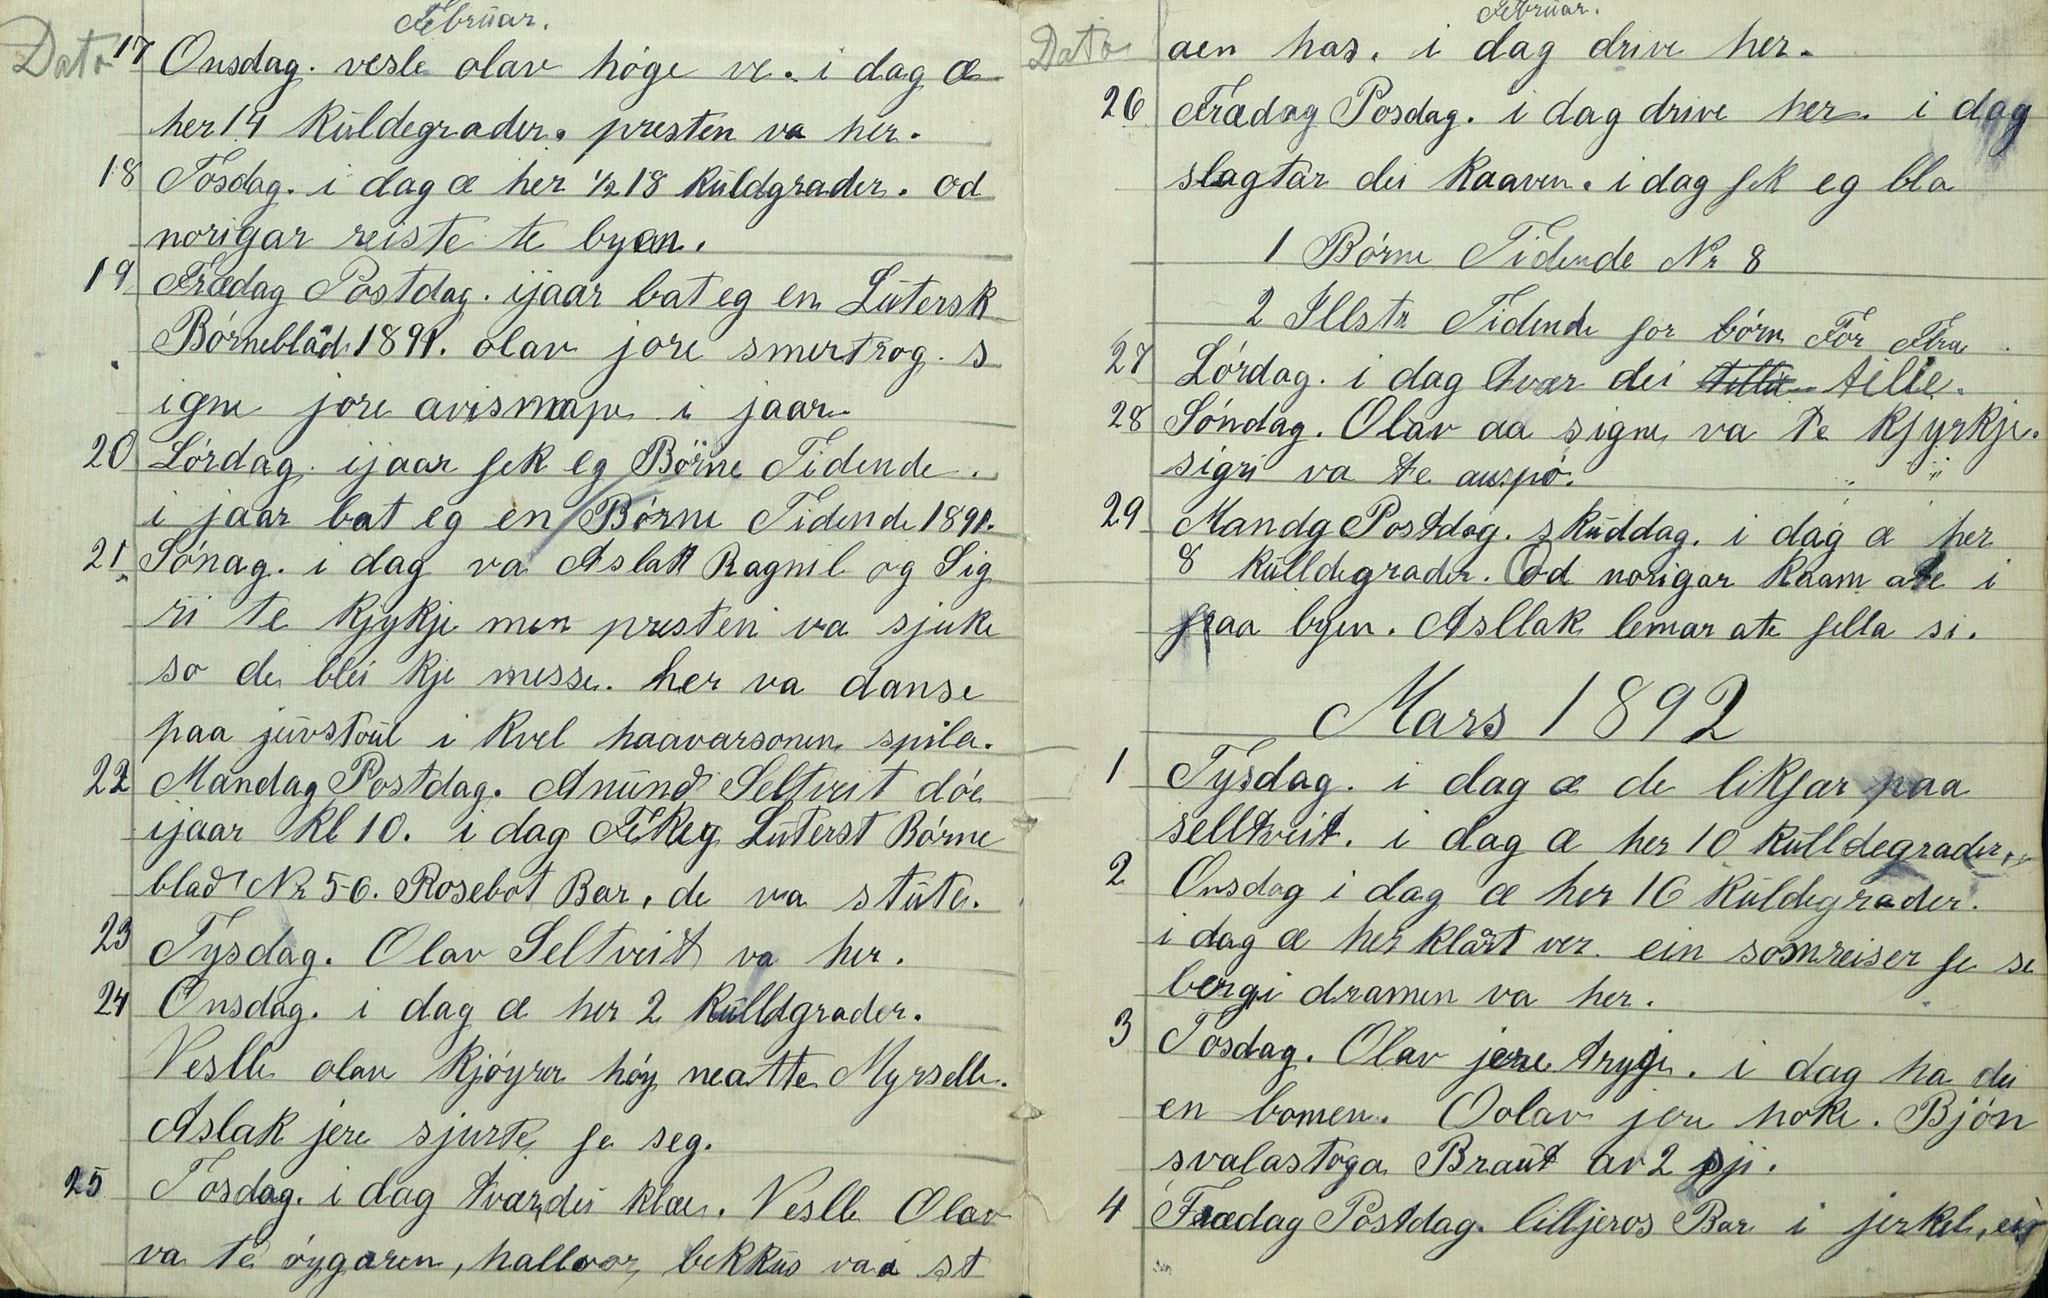 Februar.
Dato
17 Onsdag. vesle olav höge ve. i dag æ
her 14 kuldegrader. presten va her.
18 Tosdag. i dag æ her ½ 18 kuldgrader. od
norigar reiste te byen.
19 Frædag Postdag. ijaar bat eg en Lutersk
Börneblad 1891. olav jore smertrog. s
igne jore avismape i jaar.
20 Lördag. ijaar fek eg Börne Tidende.
i jaar bat eg en Börne Tidende 1891.
21 Sönag. i dag va Aslak Ragnil og Sig
ri te kjykje men presten va sjuke
so de blei kje messe. her va danse
paa juvstoul i kvel haavarsonen spila.
22 Mandag Postdag. Anund Seltveit döe
ijaar kl 10. i dag Fek eg Luterst Börne
blad Nr 5-6. Rosebot Bar. de va stute.
23 Tysdag. Olav Seltveit va her.
24 Onsdag. i dag æ her 2 kulldgrader.
Veslle olav kjöyrer höy neatte Myrselle.
Aslak jere sjurte fe seg.
25 Tosdag. i dag tvær dei klæe. Veslle Olav
va te öygaren, hallvor bekkus va i st
Februar.
Dato
aen has. i dag drive her.
26 Frædag Posdag. i dag drive her. i dag
slagtar dei kaaven. i dag fek eg bla
1 Börne Tidende Nr 8
2 Illstr Tidende for börn För Fra
27 Lördag. i dag tvær dei tille.
28 Söndag. Olav aa signe va te kjyrkje.
sigri va te auspö.
29 Mandg Postdag. skuddag. i dag æ her
8 kulldegrader. Od norigar kaam ate i
fraa byen. Asllak lemar ate fella si.
Mars 1892
1 Tysdag. i dag æ de likfar paa
selltveit. i dag æ her 10 kulldegrader.
2 Onsdag i dag æ her 16 kuldegrader.
i dag æ her klart ver. ein som reiser fe se
berg i dramen va her.
3 Tosdag. Olav jere tryge. i dag ha dei
en bomen. Oolav jere hoke. Bjön
svalastoga Braut av 2 sji.
4 Frædag Postdag. lilljeros Bar i jerkel, ein